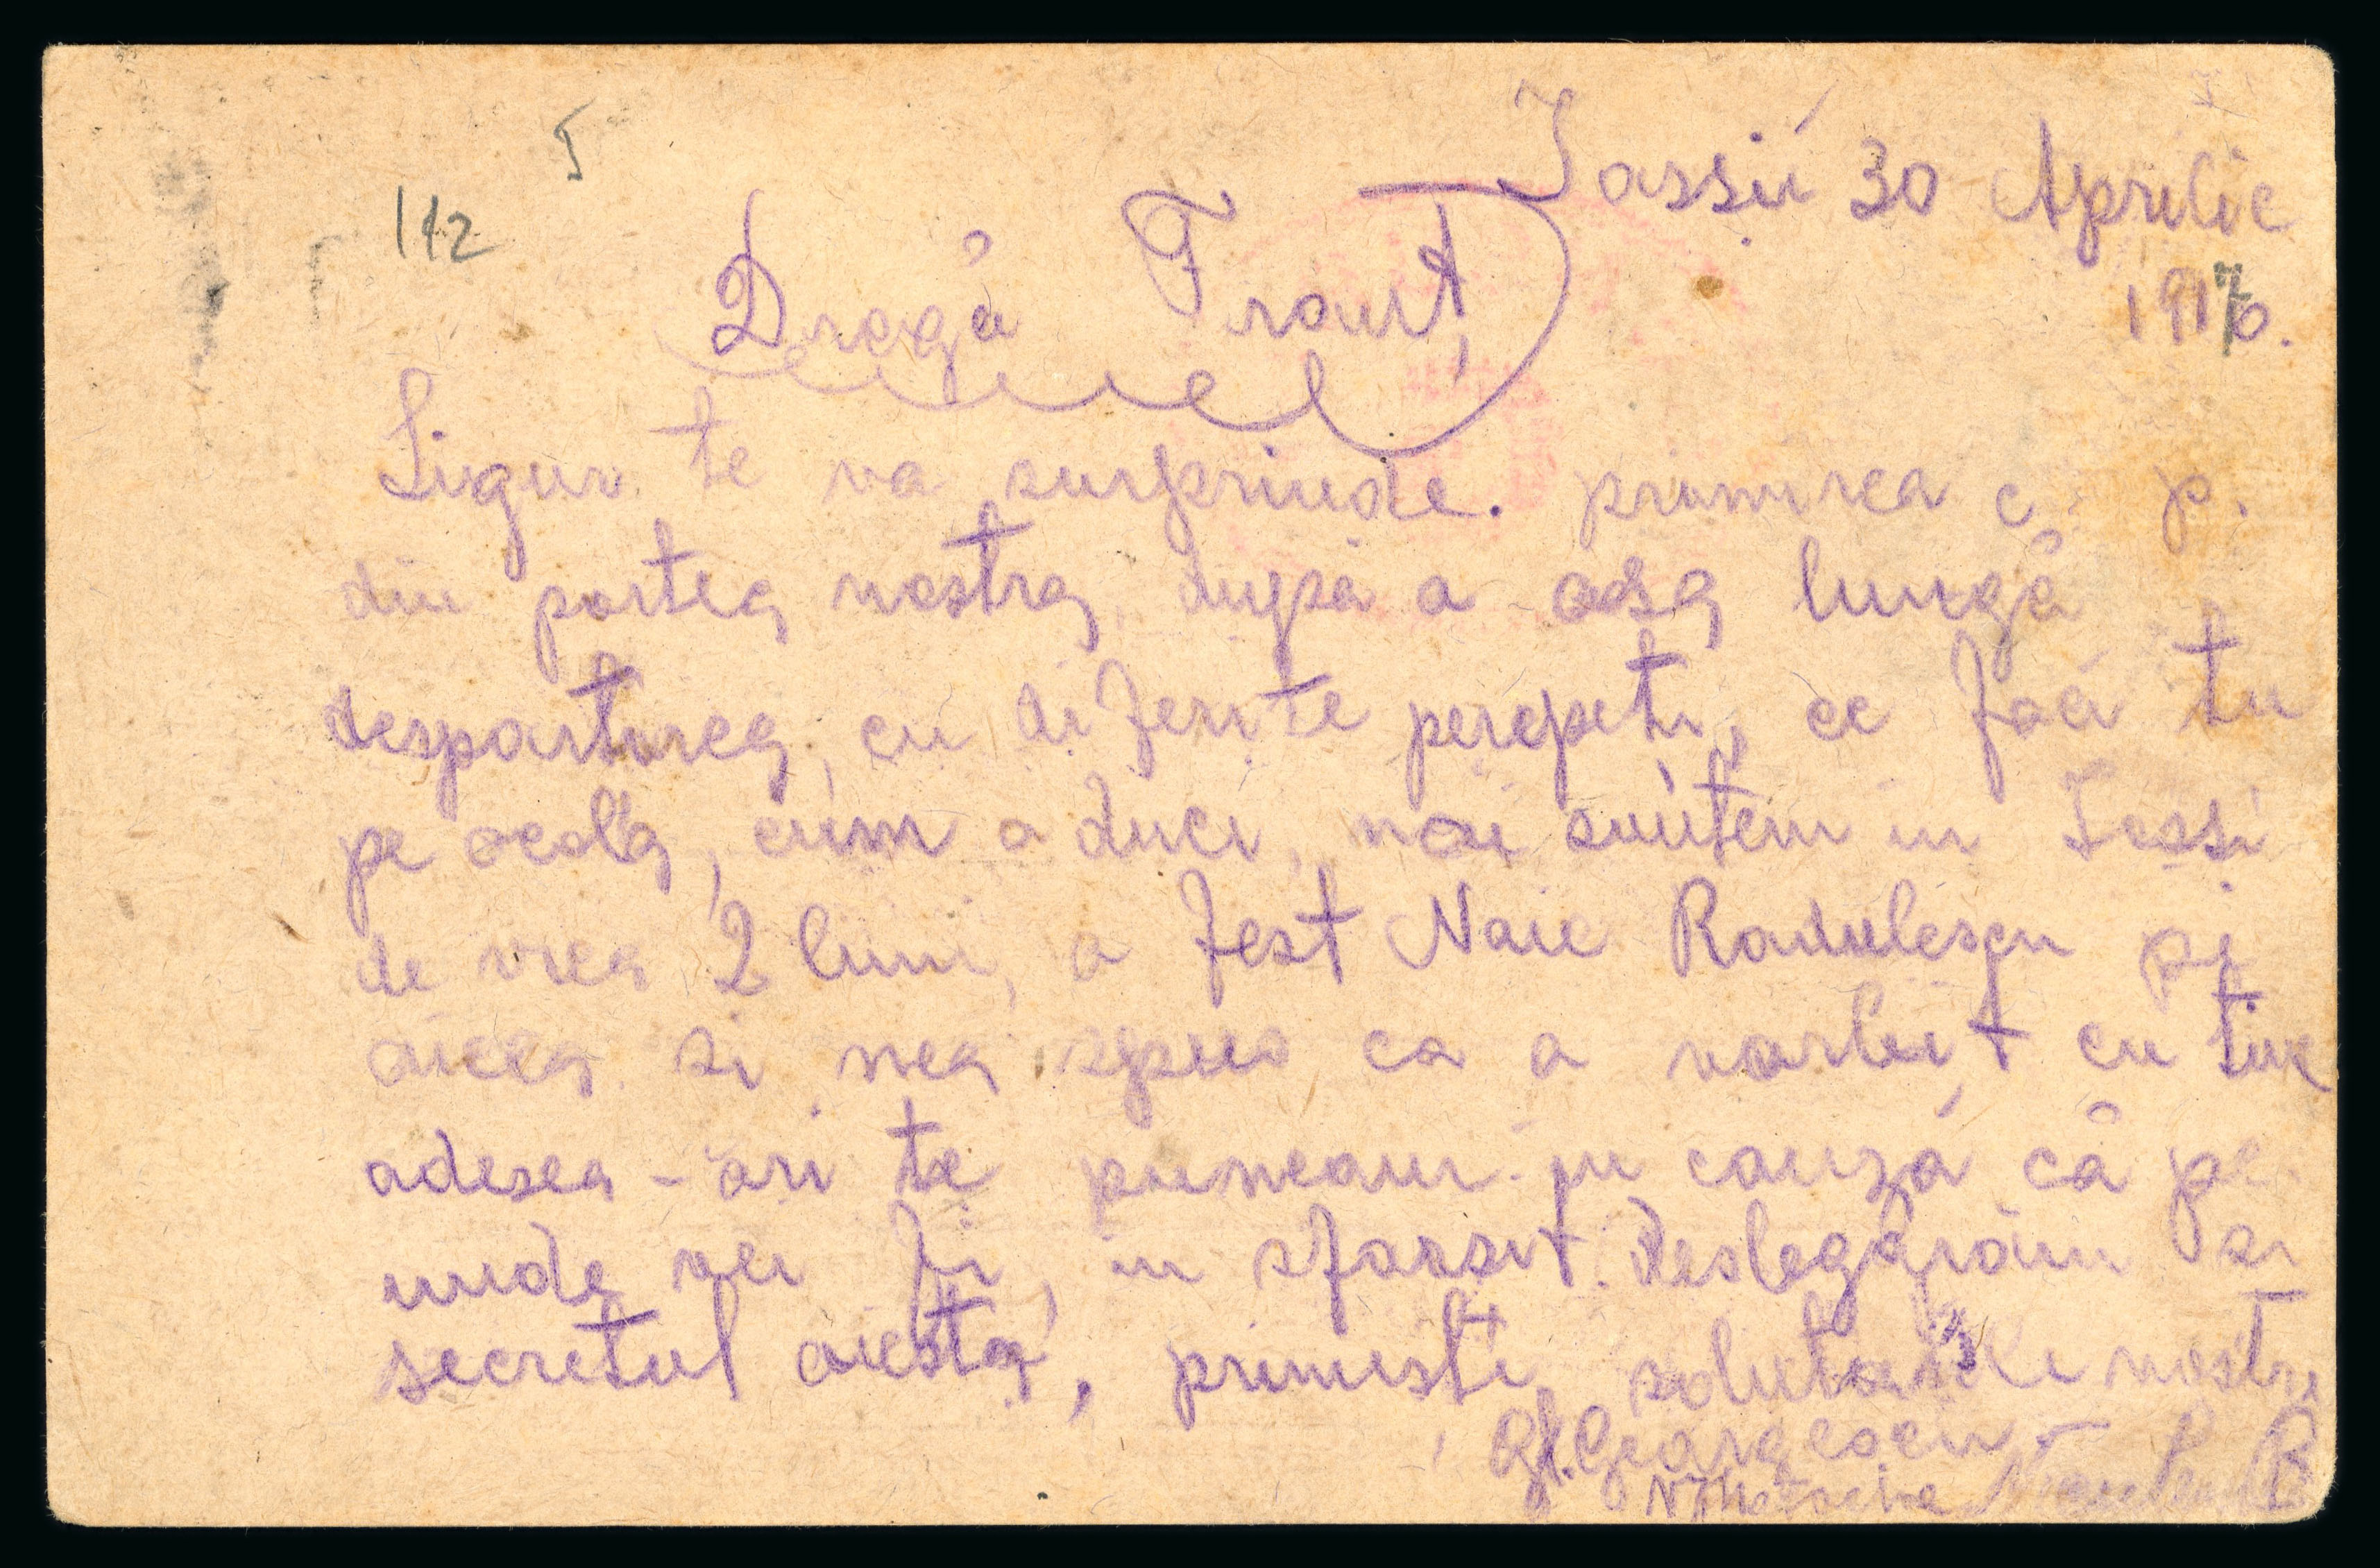 I
112
Iassii 30 Aprilie
1917.
Dragă Franț
Sigur te va surprinde. primirea c. p.
din partea nostra, după a asa lungă
despartirea, cu diferite peripeti, ce faci tu
pe acola, cum o duci, noi suntem in Iassi
de vrea 2 luni, a fost Naie Radulescu pe
aicea si nea spus ca a vorbit cu tine
adesea-ori te puneam in cauză că pe
unde vei fi, in sfarsit. deslegarăm si
secretul aicsta, primeste salutarile nostre
Gh. Georgescu.